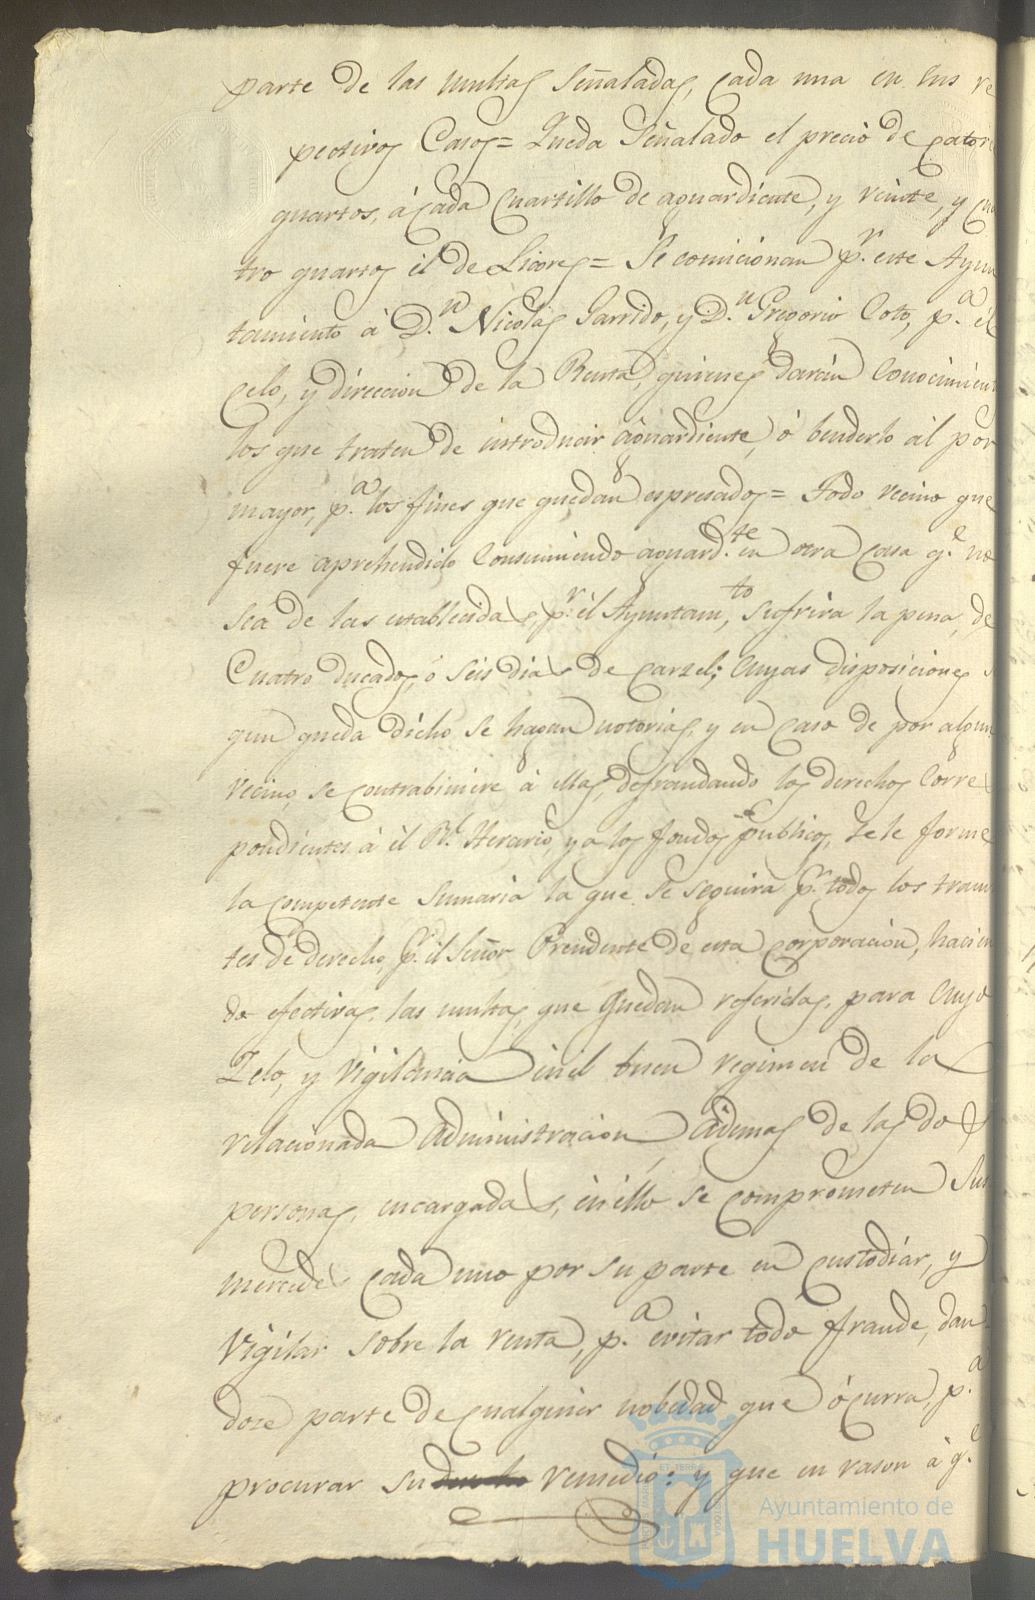 parte de las multas señaladas, cada una en sus re
pectivos Casos = Queda Señalado el precio de cator
quartos, á cada Cuartillo de aguardiente, y veinte, y cua
tro quartos el de Licores = Se comicionan p.r este Ayun
tamiento á D.n Nicolas Garrido, y D.n Gregorio Coto, p.a el
celo, y direccion de la Renta, quienes darán Conocimient
los que traten de introducir aguardiente, ó benderlo ál por
mayor, p.a los fines que quedan espresados = Todo vecino que
fuere aprehendido Consumiendo aguard.te en otra casa q.e no
sea de las establecidas, p.r él Ayuntam.to, sufrira la pena, de
Cuatro ducados, ó seis dias de carzel; Cuyas disposiciones s
gun queda dicho se hagan notorias, y en caso de por algun
vecino, se contrabiniere á ellas, defraudando los derechos Corres
pondientes á él R.l Herario, y a los fondos publicos, se le forme
la competente Sumaria la que se seguira p.r todos los trami
tes de derecho, p.r el Señor Presidente de esta corporacion, hacien
do efectivas, las multas, que quedan referidas, para Cuyo
Zelo, y vigilancia en el buen regimen de la
relacionada Administracion, ádemas de las dos
personas, encargadas, en éllo se comprometen Sus
mercedes cada uno por su parte en custodiar, y
vigilar sobre la renta, p.a evitar todo fraude, dan
dose parte de cualquier nobedad que ócurra, p.a
procurar su remedio: y que en rason á q.e
Ayuntamiento de
HUELVA